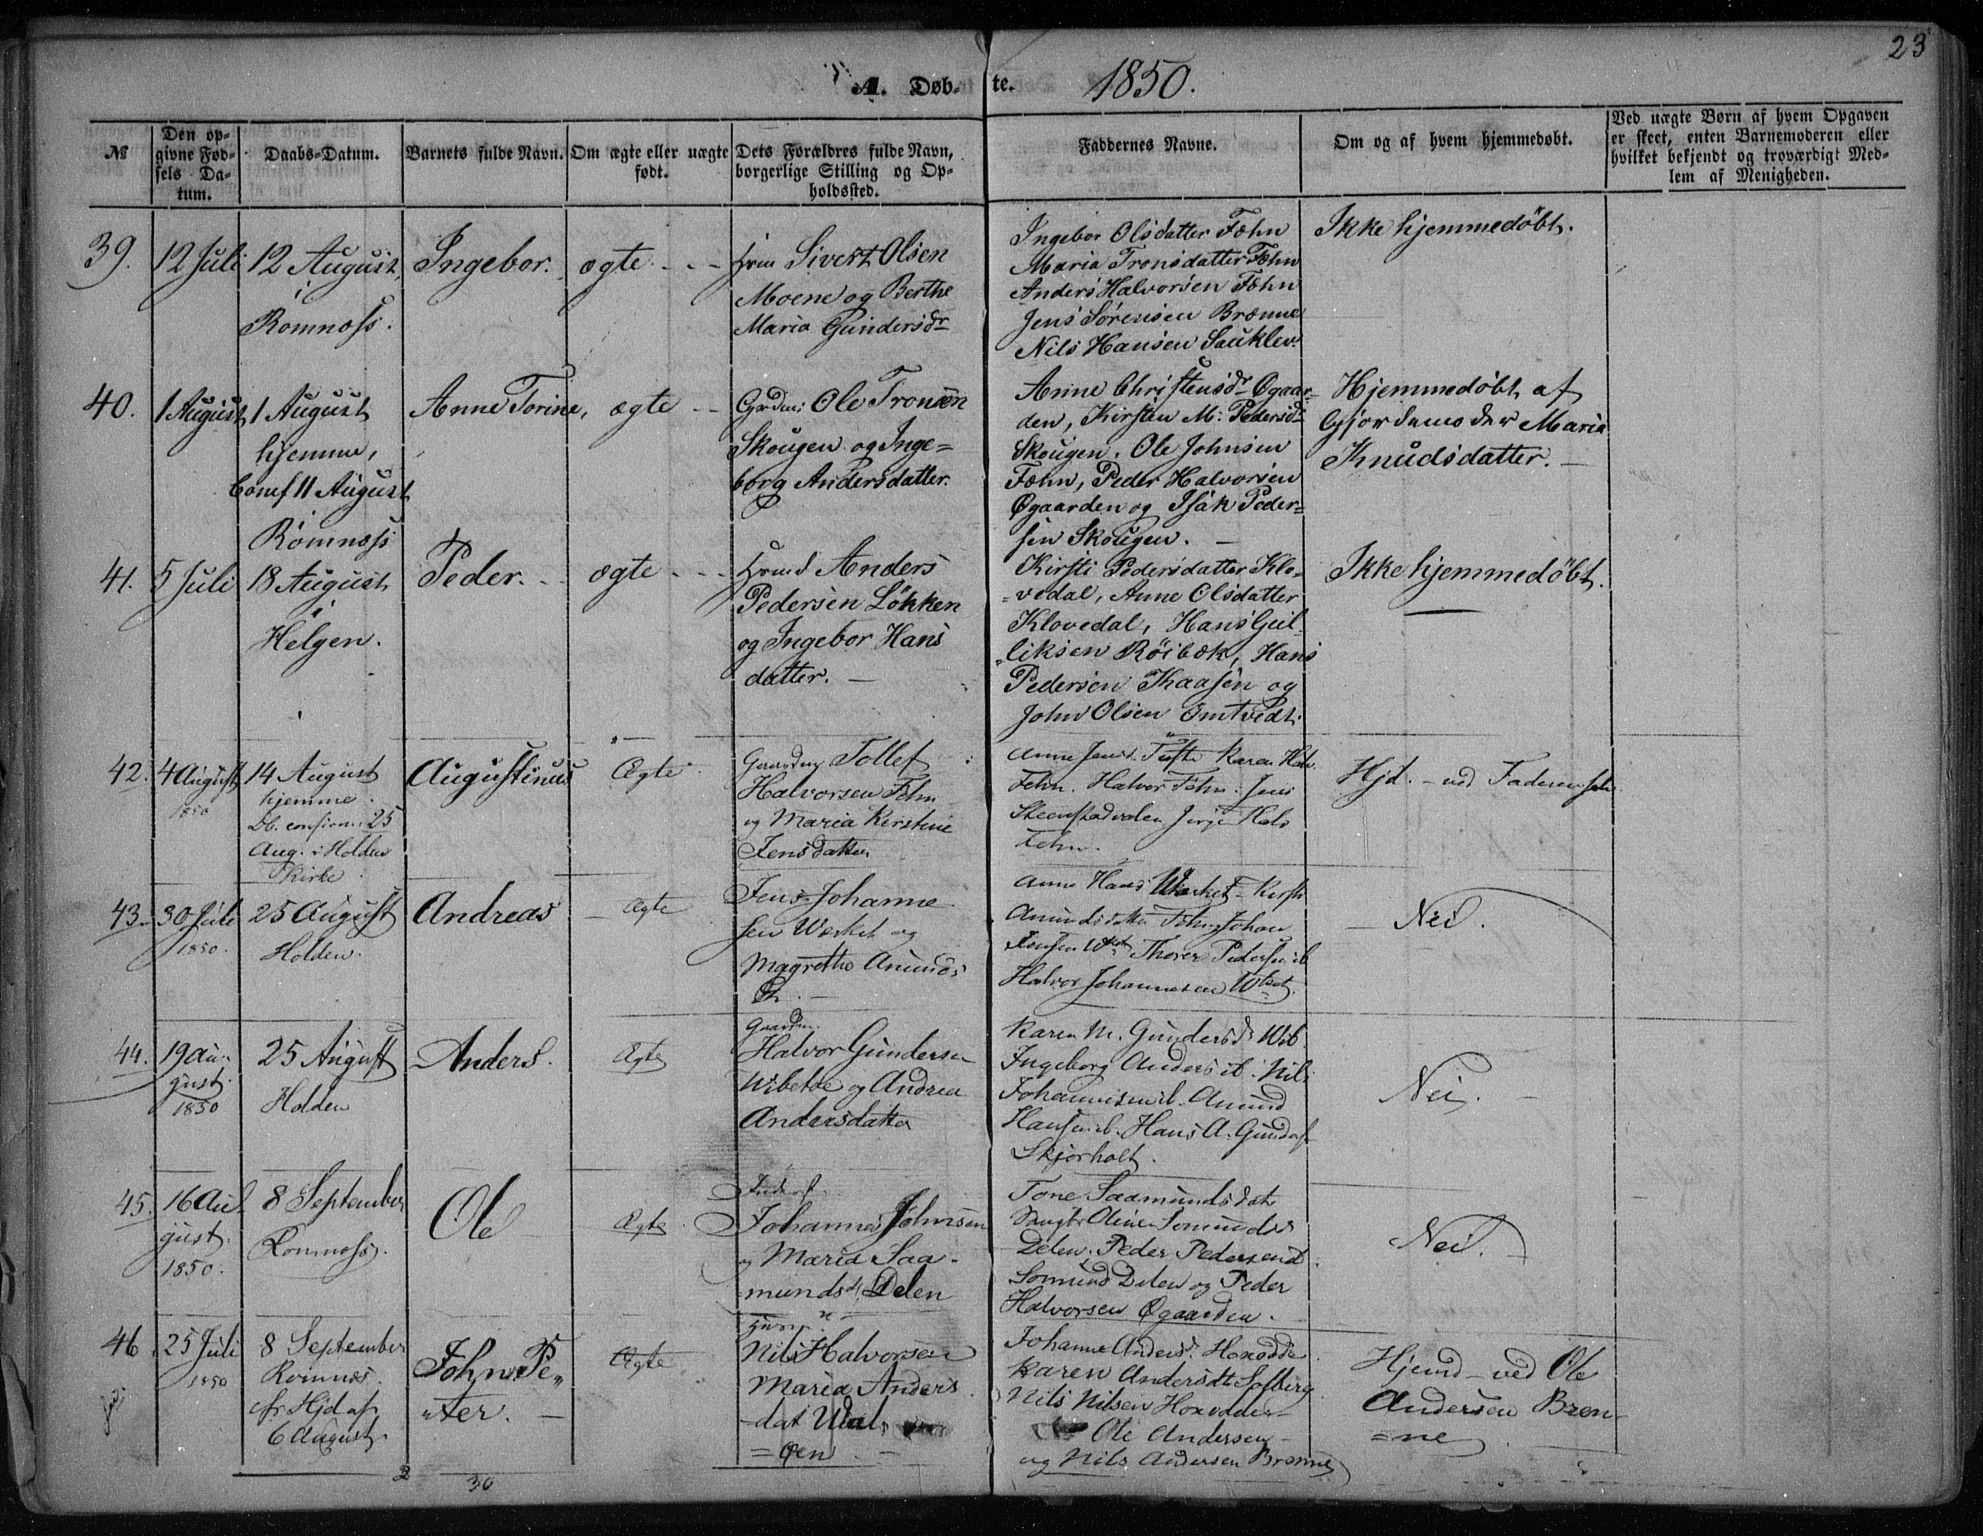 23
A. Døb- te. 1850.
№
Den op-
givne Fød-
sels Da-
tum.
Daabs-Datum.
Barnets fulde Navn.
Om ægte eller uægte
født.
Dets Forældres fulde Navn,
borgerlige Stilling og Op-
holdssted.
Faddernes Navne.
Om og af hvem hjemmedøbt.
Ved uægte Børn af hvem Opgaven
er skeet, enten Barnemoderen eller
hvilket bekjendt og troværdigt Med-
lem af Menigheden.
39. 12 Juli
12 August
i
Romnæss.
Ingebor.
ægte
Sivert Olsen
Moene og Berthe
Maria Gundersdr
Ingebor Olsdatter Fæhn
Maria Tronsdatter Fæhn
Anders Halvorsen Fæhn
Jens Sørensen Brænne
Nils Hansen Sauklev.
Ikke hjemmedøbt.
40. 1 August
1 August
hjemme,
Conf 11 August
i
Romnæss
Anne Torine,
ægte
Ole Tronsen
Skougen og Inge=
borg Andersdatter.
Anne Christensdr Øgaar-
den, Kirsten M: Pedersdr
Skougen. Ole Johnsen
Fæhn, Peder Halvorsen
Øgaarden og Isak Peder=
sen Skougen.
Hjemmedøbt af
Gjordemoder Maria
Knudsdatter.
41. 5 Juli
18 August
i
Helgen.
Peder.
ægte
Anders
Pedersen Løkken
og Ingebor Hans
datter.
Kirsti Pedersdatter Klo=
vedal, Anne Olsdatter
Klovedal, Hans Gul-
liksen Röibæk, Hans
Pedersen Kaasen og
John Olsen Omtvedt.
Ikke hjemmedøbt.
42. 4 August
1850
14 August
hjemme
Db. confirm: 25
Aug. i Holden
Kirke
Augustinus
Ægte
Tollef
Halvorsen Fehn
og Maria Kirstine
Jensdatter
Anne Jensd. Tufte Karen Halv.
Fehn. Halvor Fehn. Jens
Steenstadvalen Jørgen Hals
Fehn.
Hjd. - ved Faderen
43. 30 Juli
1850.
25 August
Holden.
Andreas
Ægte
Jens Johanne
sen Værket og
Magrethe Amunds
Dr.
Anne Hansd Værket - Kirsti
Amundsdatter Fehn Johan
Jensen Thorer Pedersen ib
Halvor Johannesen
Nei.
44. 19 Au-
gust.
1850
25 August
Holden
Anders.
Ægte
Gaardm.
Halvor Gundersen
Vibetoe og Andrea
Andersdatter
Karen M. Gundersd. Vib.
Ingeborg Anders ib. Nils
Johannesen ib. Amund
Hansen ib. Hans A. Gunders
Skjørholt.
Nei.
45. 16 Au
gust.
1850.
8 September
Romnæss.
Ole
Ægte
Johannes Johnsen
og Maria Saa-
mundsd. Delen
Tone Saamundsdat
Oline Somunds
Delen. Peder Pedersen
Somund Delen og Peder
Halvorsen Øgaarden.
Nei.
46 25 Juli
1850
8 September
Romnæs.
fr Hjd af
6 August.
John Pe-
ter.
Ægte
Nils Halvorsen
Maria Anders.
dat Udal,
=øen
Johanne Andersd. Hoxodde
Karen Andersdt Solberg
Nils Nilsen Hoxodden
Ole Andersen
og Nils Andersen Brænne
Hjemd - ved Ole
Andersen Bren-
=ne
2
30